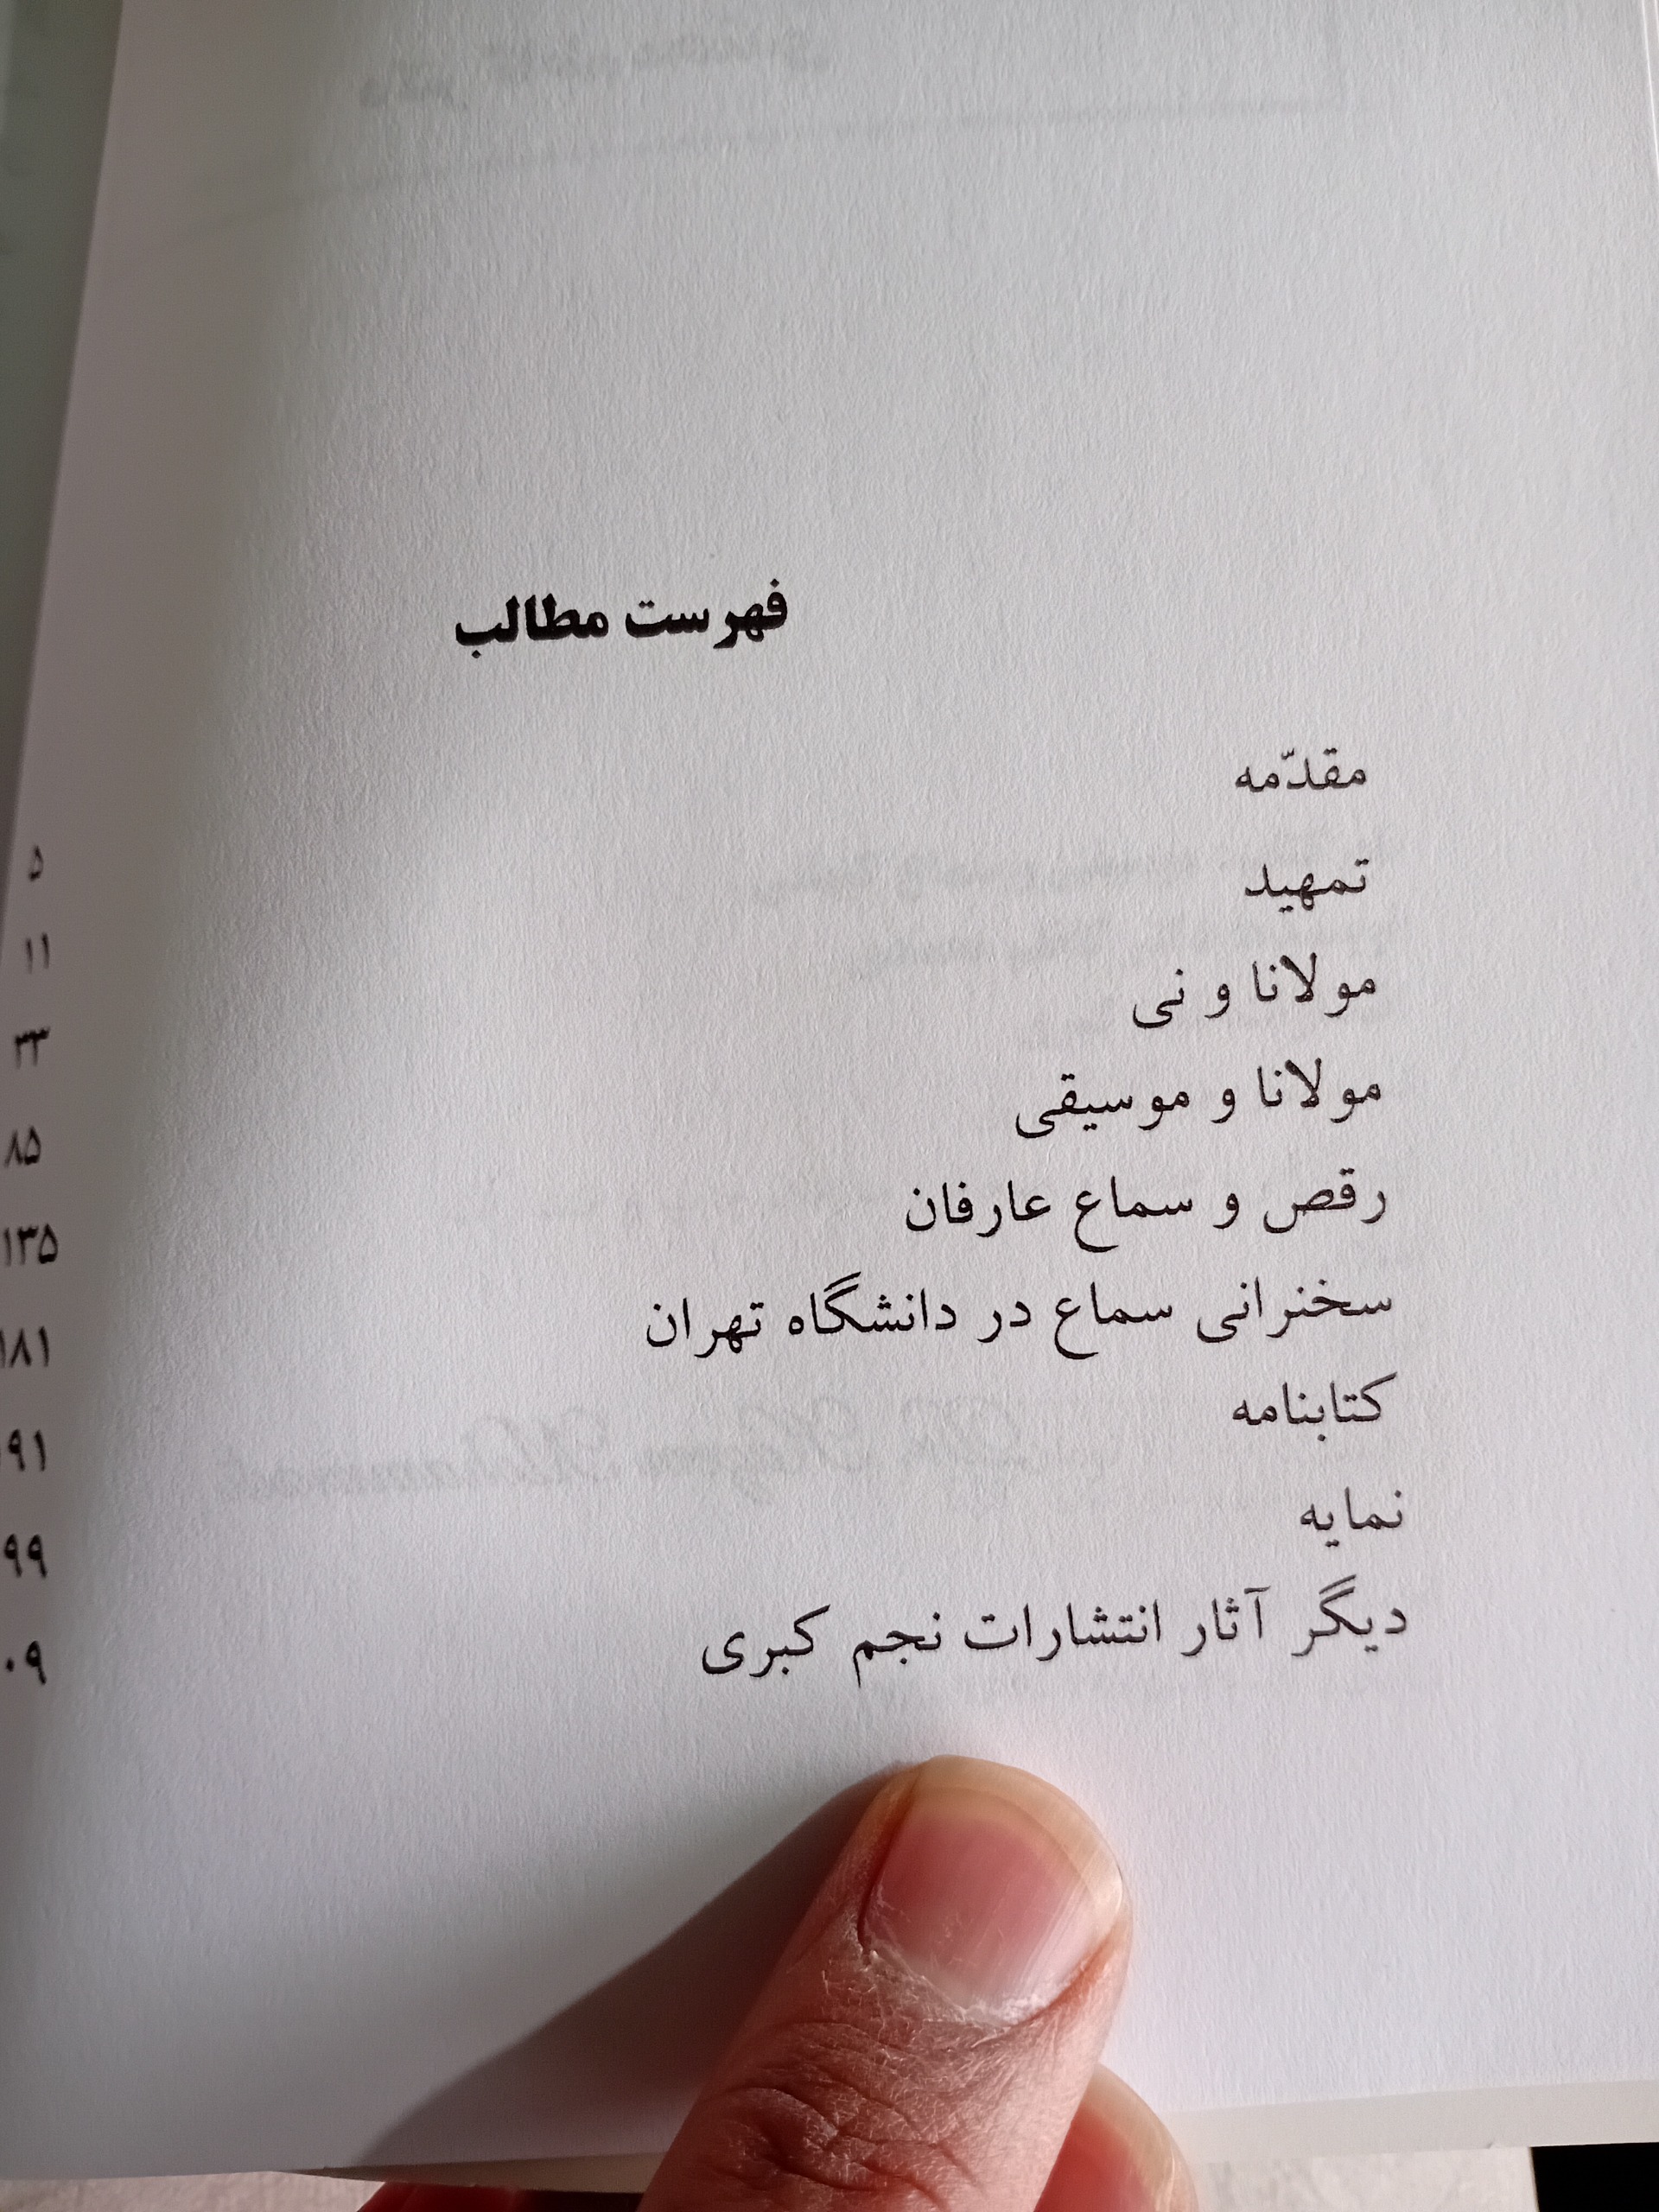 فهرست مطالب
مقدّمه ۵
تمهید ۱۱
مولانا و نی ۳۳
مولانا و موسیقی ۸۵
رقص و سماع عارفان ۱۳۵
سخنرانی سماع در دانشگاه تهران ۱۸۱
کتابنامه ۹۱
نمایه ۹۹
دیگر آثار انتشارات نجم کبری ۰۹